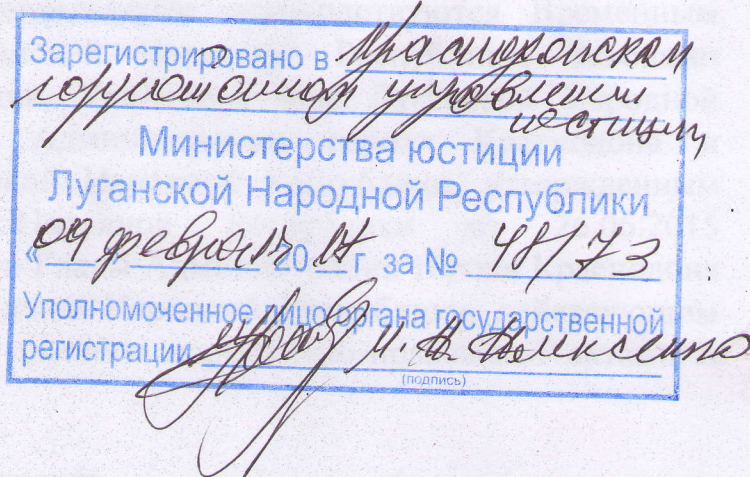 Зарегистрировано в Краснодонском
горрайонном управлении
юстиции
Министерства юстиции
Луганской Народной Республики
«09 февраля 2017 г. за № 48/73
Уполномоченное лицо органа государственной
регистрации
(подпись)